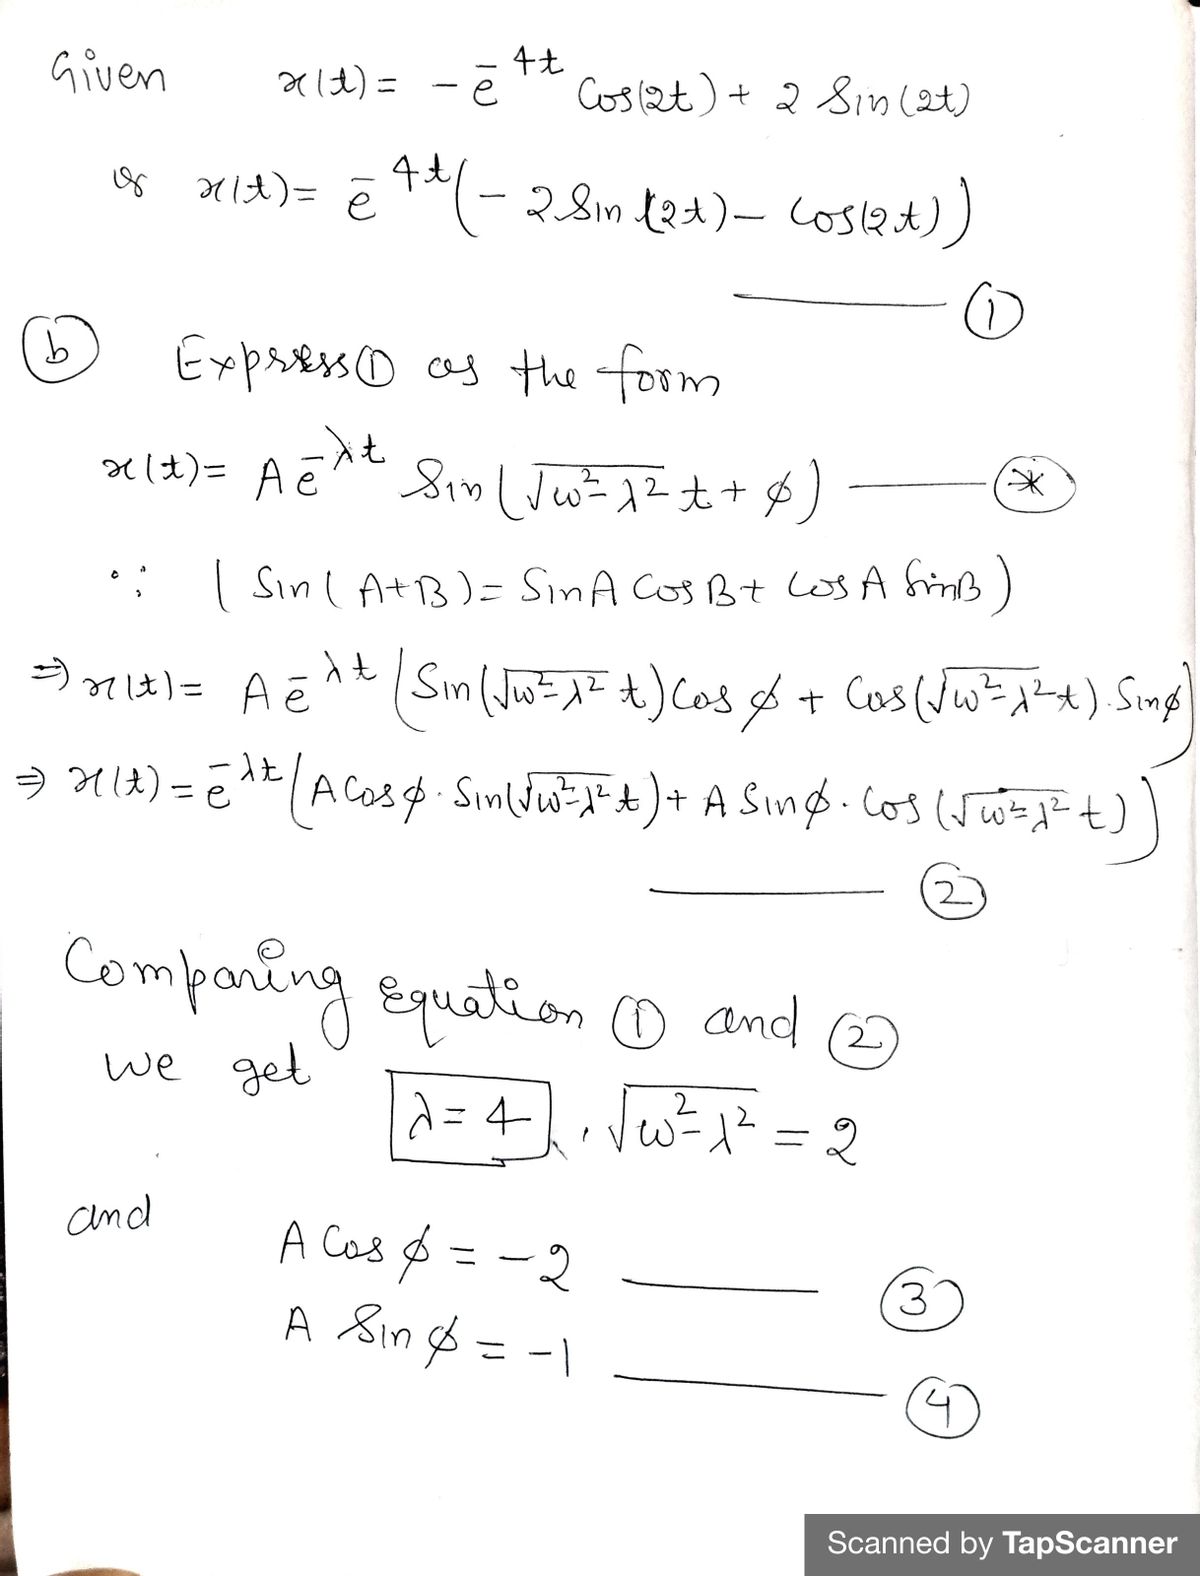 Given x(t) = - e^-4t Cos(2t) + 2 Sin(2t)
or x(t) = e^-4t (- 2 Sin (2t) - Cos(2t))
①
ⓑ Express ① as the form
x(t) = A e^-λt Sin(√ω²-λ² t + φ) (*)
∵ ( Sin ( A+B ) = Sin A Cos B + Cos A Sin B )
⇒ x(t) = A e^-λt (Sin(√ω²-λ² t) Cos φ + Cos(√ω²-λ² t). Sin φ)
⇒ x(t) = e^-λt (A Cos φ. Sin(√ω²-λ² t) + A Sin φ. Cos (√ω²-λ² t))
②
Comparing equation ① and ②
we get
λ = 4 , √ω²-λ² = 2
and
A Cos φ = -2 ③
A Sin φ = -1 ④
Scanned by TapScanner